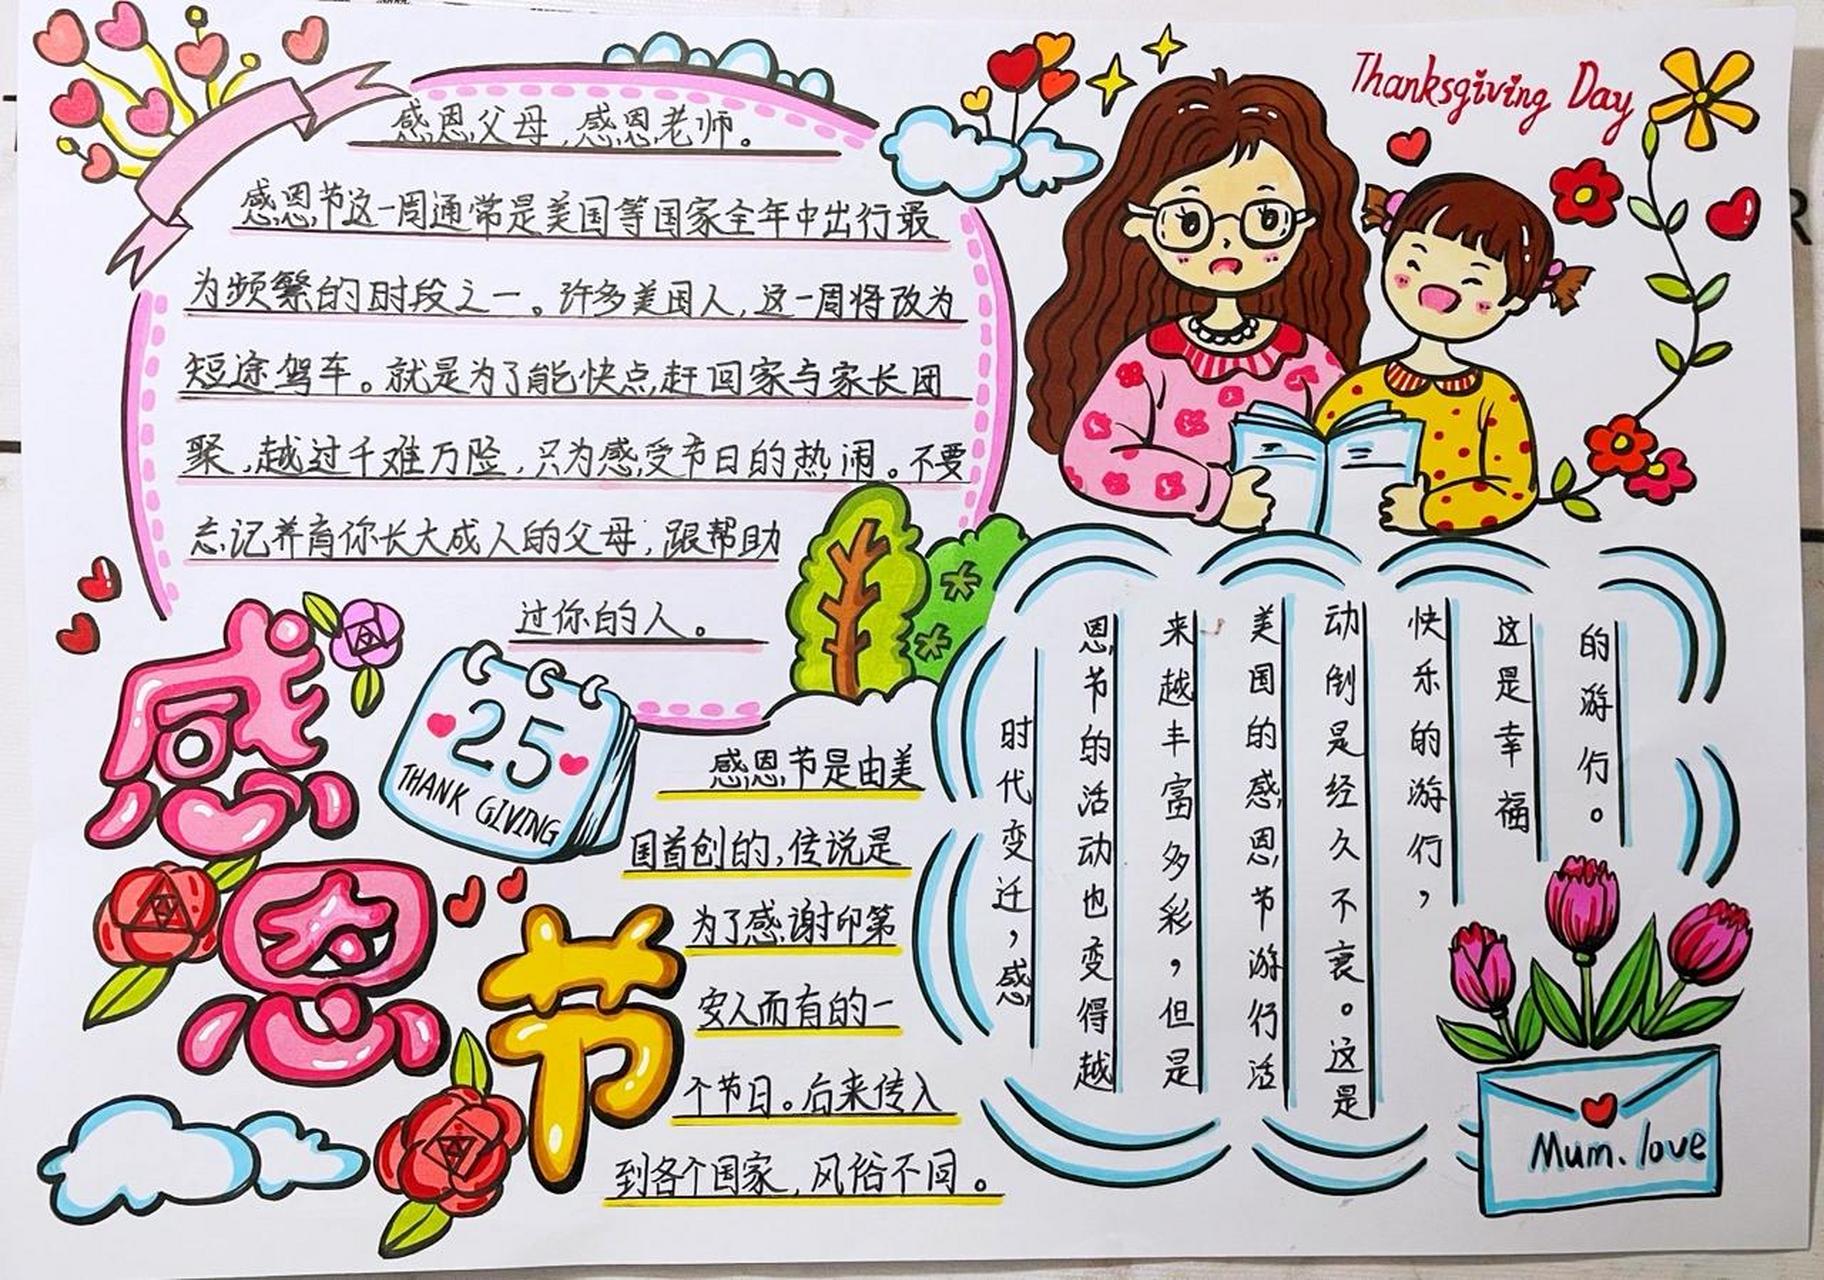 感恩父母,感恩老师。
感恩节这一周通常是美国等国家全年中出行最
为频繁的时段之一。许多美国人,这一周将改为
短途驾车。就是为了能快点赶回家与家长团
聚,越过千难万险,只为感受节日的热闹。不要
忘记养育你长大成人的父母,跟帮助
过你的人。
Thanksgiving Day
感
恩
节
25
THANK GIVING
感恩节是由美
国首创的,传说是
为了感谢印第
安人而有的一
个节日。后来传入
到各个国家,风俗不同。
时代变迁,感
恩节的活动也变得越
来越丰富多彩,但是
美国的感恩节游行活
动倒是经久不衰。这是
快乐的游行,
这是幸福
的游行。
Mum. love